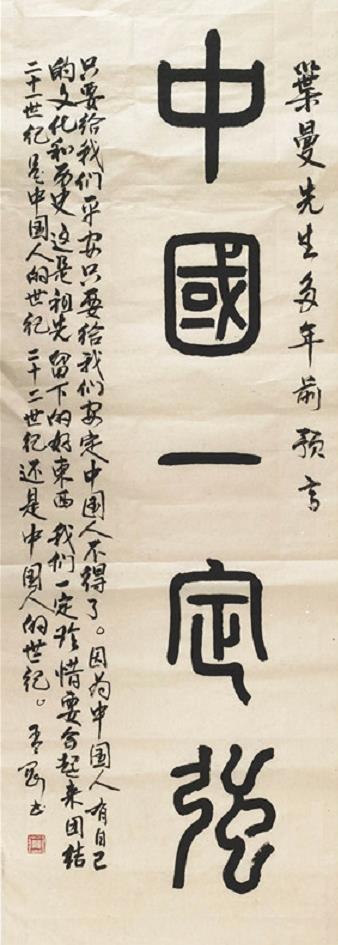 葉曼先生多年前預言
中國一定強
只要给我们平安只要给我们安定中国人不得了。因为中国人有自己
的文化和历史这是祖先留下的好東西我们一定珍惜要合起来团结
二十一世纪是中国人的世纪二十二世纪还是中国人的世纪。